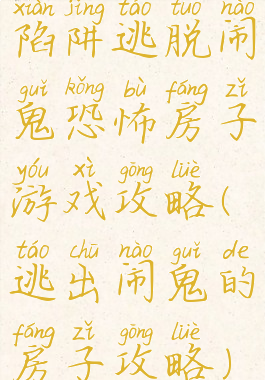 xiàn jǐng táo tuō nào
陷阱逃脱闹
guǐ kǒng bù fáng zǐ
鬼恐怖房子
yóu xì gōng lüè
游戏攻略(
táo chū nào guǐ de
逃出闹鬼的
fáng zǐ gōng lüè
房子攻略)